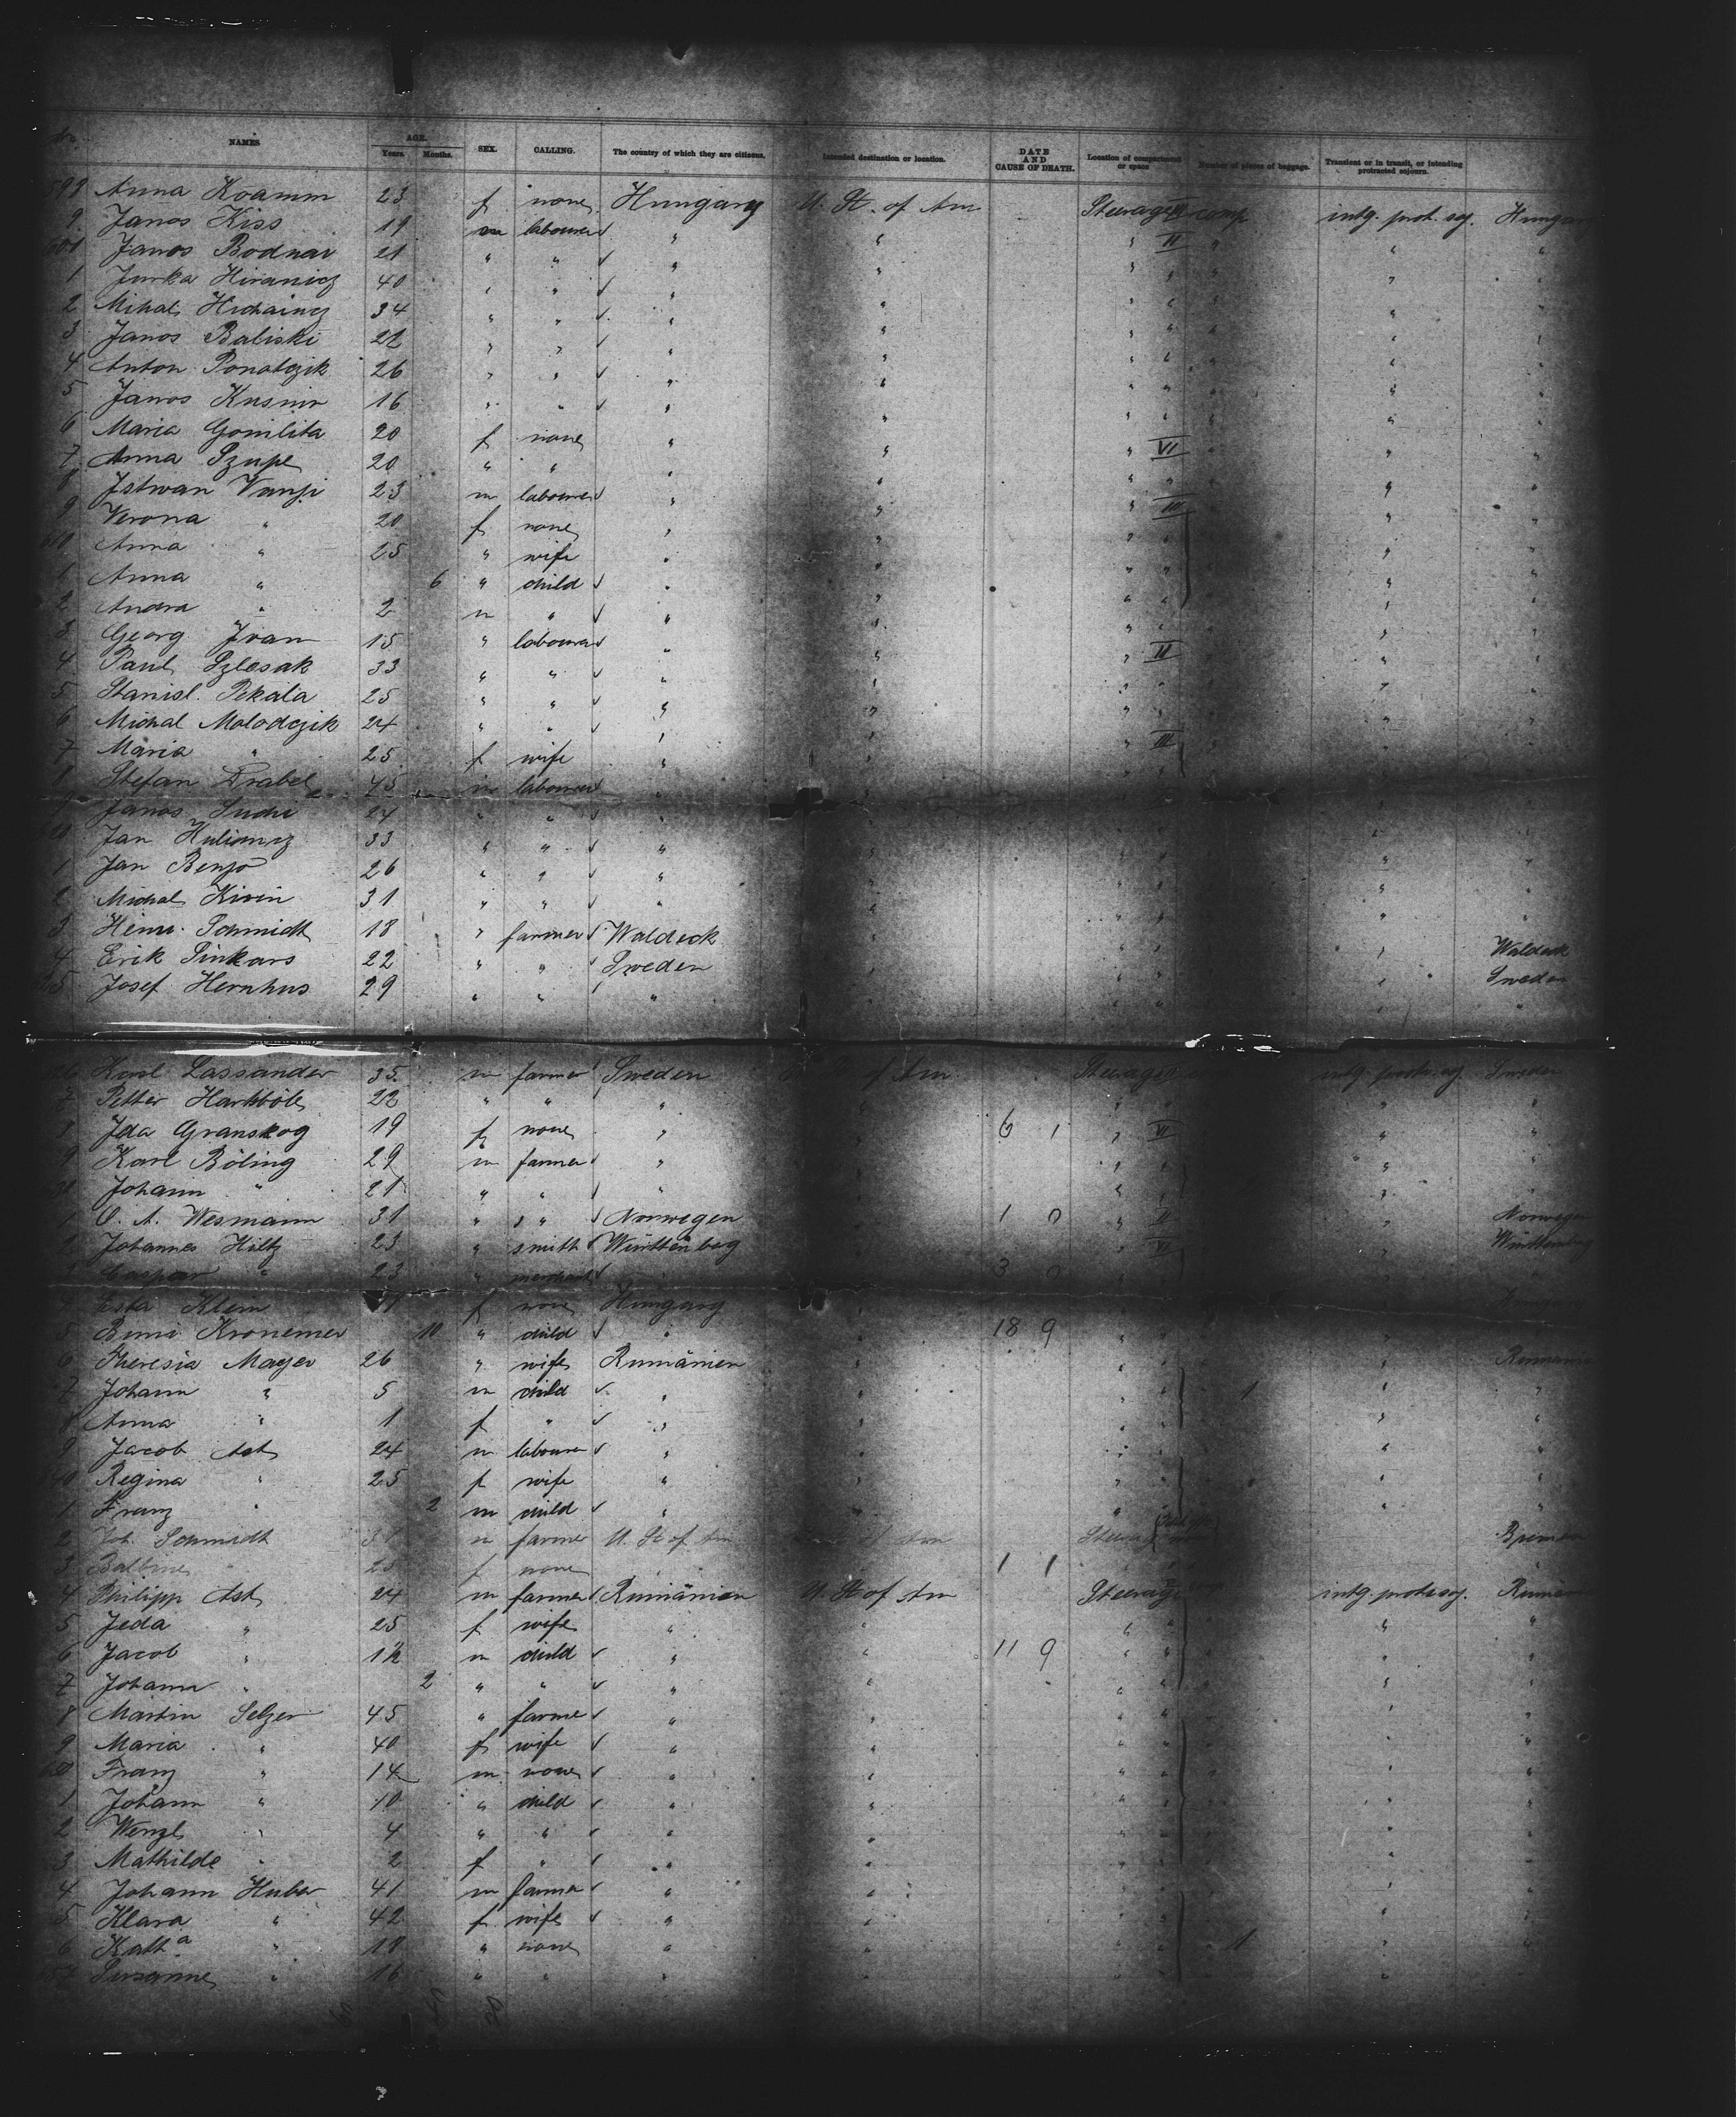 No. NAMES AGE. Years. Months. SEX. CALLING. The country of which they are citizens. Intended destination or location. DATE AND CAUSE OF DEATH. Location of compartment or space Number of pieces of baggage. Transient or in transit, or intending protracted sojourn.
598 Anna Koamm 23 f none Hungary U. St. of Am Steerage comp intg. prot. soj. Hungary
9 Janos Kiss 19 m labourer " " " II " " "
601 Janos Bodnar 21 " " " " " " " "
1 Jurka Hiranicz 40 " " " " " " " "
2 Mihal 34 " " " " " " " "
3 Janos Baliski 21 " " " " " " " "
4 Anton Ponatczik 26 " " " " " " " "
5 Janos Kusnir 16 " " " " " " " "
6 Maria Gomilita 20 f none " " " VI " " "
7 Anna Szupe 20 " " " " " " " "
8 Istwan Vanji 23 m labourer " " " III " "
9 Verona " 20 f none " " " " " "
610 Anna " 25 " wife " " " " " "
1 Anna " 6 " child " " " " " "
2 Andra " 2 m " " " " " " "
3 Georg Ivan 15 " labourer " " " II " "
4 Paul Szlosak 33 " " " " " " " "
5 Stanisl. Pekala 25 " " " " " " " "
6 Michal Molodczik 24 " " " " " III " "
7 Maria " 25 f wife " " " " " "
8 Stefan Drabel 45 m labourer " " " " "
9 Janos Suchi 24 " " " " " " "
620 Jan Hulianicz 33 " " " " " " " "
1 Jan Benjo 26 " " " " " " " "
2 Michal Kirin 31 " " " " " " " "
3 Heinr. Schmidt 18 " farmer Waldeck " " " " Waldeck
4 Erik Sinkars 22 " " Sweden " " " " Sweden
625 Josef Hernhus 29 " " " " " " " "
626 Karl Lassander 35 m farmer Sweden of Am Steerage intg. prot. soj. Sweden
7 Petter Harkböle 22 " " " " " " " "
8 Ida Granskog 19 f none " " 6 1 " VI " "
9 Karl Böling 29 m farmer " " " " " "
Johann " 21 " " " " " " " "
1 O. A. Wesmann 31 " " Norwegen " 1 0 " II " Norwegen
2 Johannes Hiltz 23 " smith Württenberg " " VI " Württenberg
3 Caspar " 23 " merchant " " 3 0 " " "
4 Esta Klein f none Hungary " " " " Hungary
5 Beni Kronemer 10 " child " " 18 9 " " " "
6 Theresia Mayer 26 " wife Rumänien " " " " Rumänien
7 Johann " 5 m child " " " " 1 " "
8 Anna " 1 f " " " " " " "
9 Jacob Ast 24 m labourer " " " " " "
640 Regina " 25 f wife " " " " " "
1 Franz " 2 m child " " " " " "
2 Joh. Schmidt 31 m farmer U. St of Am Am Steerage Bremen
3 Balbine 25 f none " " 1 1 " "
4 Philipp Ast 24 m farmer Rumänien U. St of Am Steerage intg. prot. soj. Rumänien
5 Jeda " 25 f wife " " " " " "
6 Jacob " 1½ m child " " 11 9 " " " "
7 Johann " 2 " " " " " " " "
8 Martin Selzer 45 " farmer " " " " " "
9 Maria " 40 f wife " " " " " "
650 Franz " 14 m none " " " " " "
1 Johann " 10 " child " " " " " "
2 Wenzl " 4 " " " " " " " "
3 Mathilde " 2 f " " " " " " "
4 Johann Huber 41 m farmer " " " " " "
5 Klara " 42 f wife " " " " " "
6 Kath.a " 18 " none " " " " 1 " "
657 Susanne " 16 " " " " " " " "